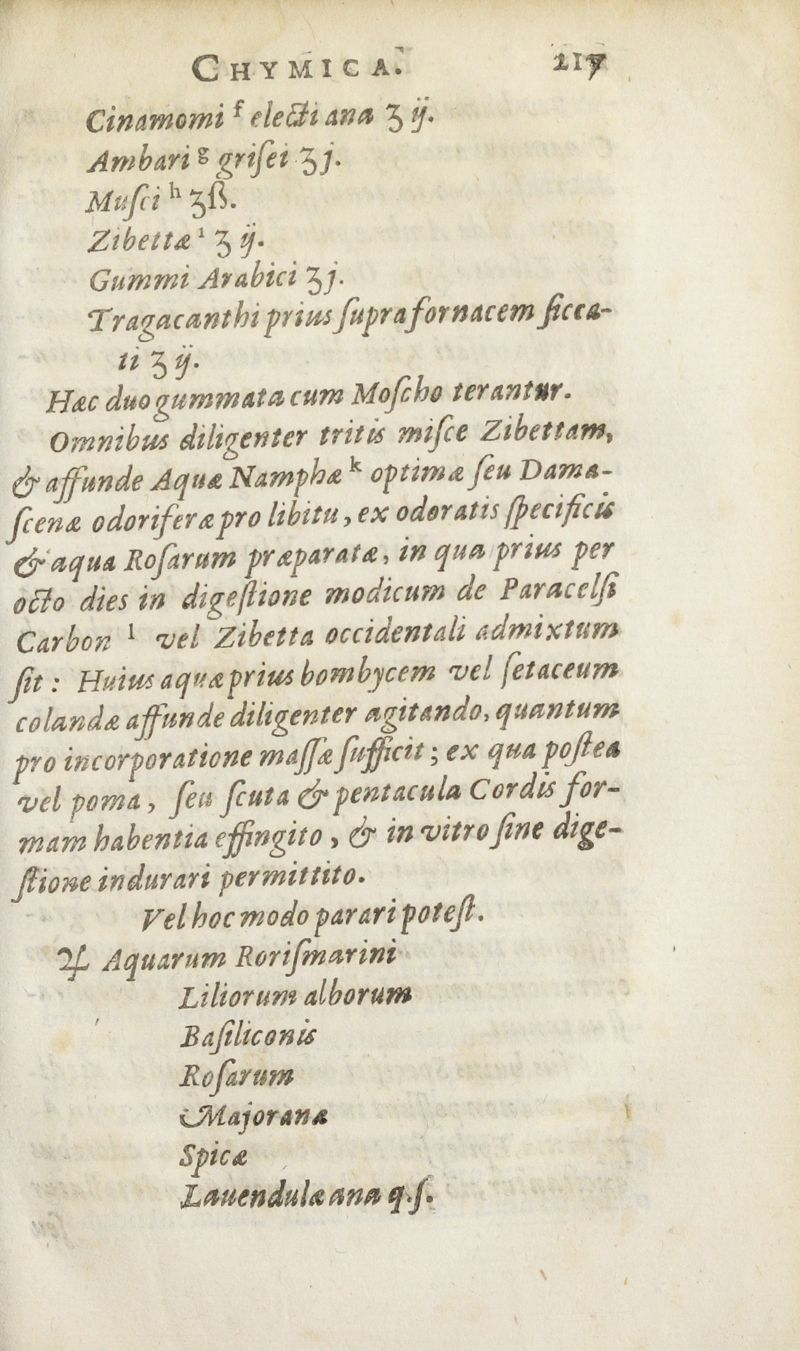 CHYMICA. 217
Cinamomi ᶠ electi ana ʒ ij.
Ambari ᵍ griſei ʒj.
Muſci ʰ ʒß.
Zibettæ ⁱ ʒ ij.
Gummi Arabici ʒj.
Tragacanthi prius ſupra fornacem ſicca-
ti ʒ ij.
Hæc duo gummata cum Moſcho terantur.
Omnibus diligenter tritis miſce Zibettam,
& affunde Aquæ Namphæ ᵏ optimæ ſeu Dama-
ſcenæ odoriferæ pro libitu, ex odoratis ſpecificis
& aqua Roſarum præparatæ, in qua prius per
octo dies in digeſtione modicum de Paracelſi
Carbon ˡ vel Zibetta occidentali admixtum
ſit: Huius aquæ prius bombycem vel ſetaceum
colandæ affunde diligenter agitando, quantum
pro incorporatione maſſæ ſufficit; ex qua poſtea
vel poma, ſeu ſcuta & pentacula Cordis for-
mam habentia effingito, & in vitro ſine dige-
ſtione indurari permittito.
Vel hoc modo parari poteſt.
♃ Aquarum Roriſmarini
Liliorum alborum
Baſiliconis
Roſarum
Majorana
Spicæ
Lauendulæ ana q.ſ.